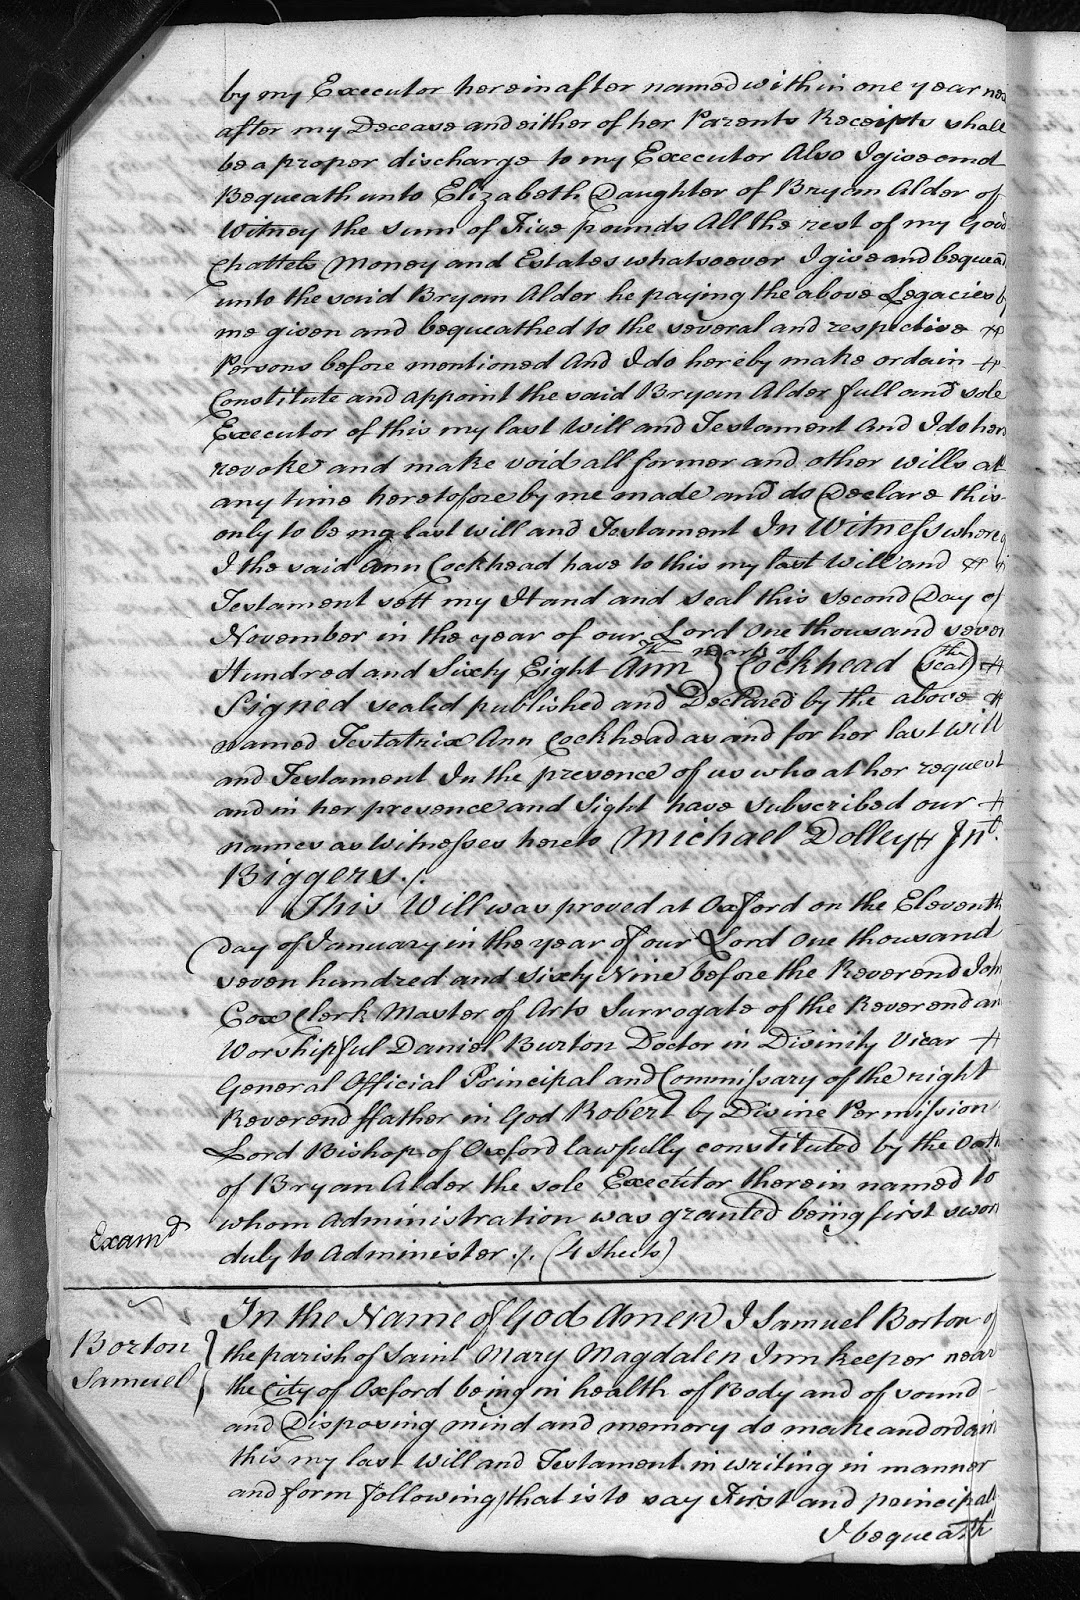 by my Executor hereinafter named within one year nex
after my Decease and either of her Parents Receipts shall
be a proper discharge to my Executor Also I give and
Bequeath unto Elizabeth Daughter of Bryan Alder of
Witney the sum of Five pounds All the rest of my Good
Chattels Money and Estates whatsoever I give and bequea
unto the said Bryan Alder he paying the above Legacies b
me given and bequeathed to the several and respective
Persons before mentioned And I do hereby make ordain
Constitute and appoint the said Bryan Alder full and sole
Executor of this my last Will and Testament And I do here
revoke and make void all former and other wills at
any time heretofore by me made and do Declare this
only to be my last will and Testament In Witness whereof
I the said Ann Cockhead have to this my last Will and
Testament sett my Hand and Seal this Second Day of
November in the year of our Lord One thousand seven
Hundred and Sixty Eight Ann The mark of Cockhead (The Seal)
Signed sealed published and Declared by the above
named Testatrix Ann Cockhead as and for her last Will
and Testament In the presence of us who at her request
and in her presence and Sight have subscribed our
names as witnesses hereto Michael Dolley Jnr.
Biggers ./.
This Will was proved at Oxford on the Eleventh
day of January in the year of our Lord One thousand
seven hundred and sixty Nine before the Reverend John
Cox Clerk Master of Arts Surrogate of the Reverend an
Worshipful Daniel Burton Doctor in Divinity Vicar
General Official Principal and Commissary of the right
Reverend ffather in God Robert by Divine Permission
Lord Bishop of Oxford lawfully constituted by the Oath
of Bryan Alder the sole Executor therein named to
whom Administration was granted being first sworn
Examd
duly to Administer ./. (4 sheets)
In the Name of God Amen I Samuel Borton of
Borton
the parish of Saint Mary Magdalen Innkeeper near
Samuel
the City of Oxford being in health of Body and of sound
and Disposing mind and memory do make and ordain
this my last Will and Testament in writing in manner
and form following that is to say First and principally
I bequeath